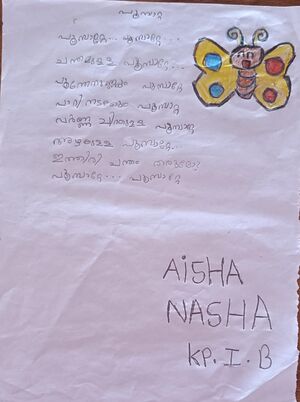 പൂമ്പാറ്റ
പൂമ്പാറ്റേ... പൂമ്പാറ്റേ...
ചന്തമുള്ള പൂമ്പാറ്റേ...
പൂമ്പാറ്റേ
പാറി നടക്കും പൂമ്പാറ്റ
വർണ്ണ ചിറകുള്ള പൂമ്പാറ്റ
അഴകുള്ള പൂമ്പാറ്റേ..
ഇത്തിരി ചന്തം തരുമോ?
പൂമ്പാറ്റേ... പൂമ്പാറ്റേ
AiSHA
NASHA
KP. I. B